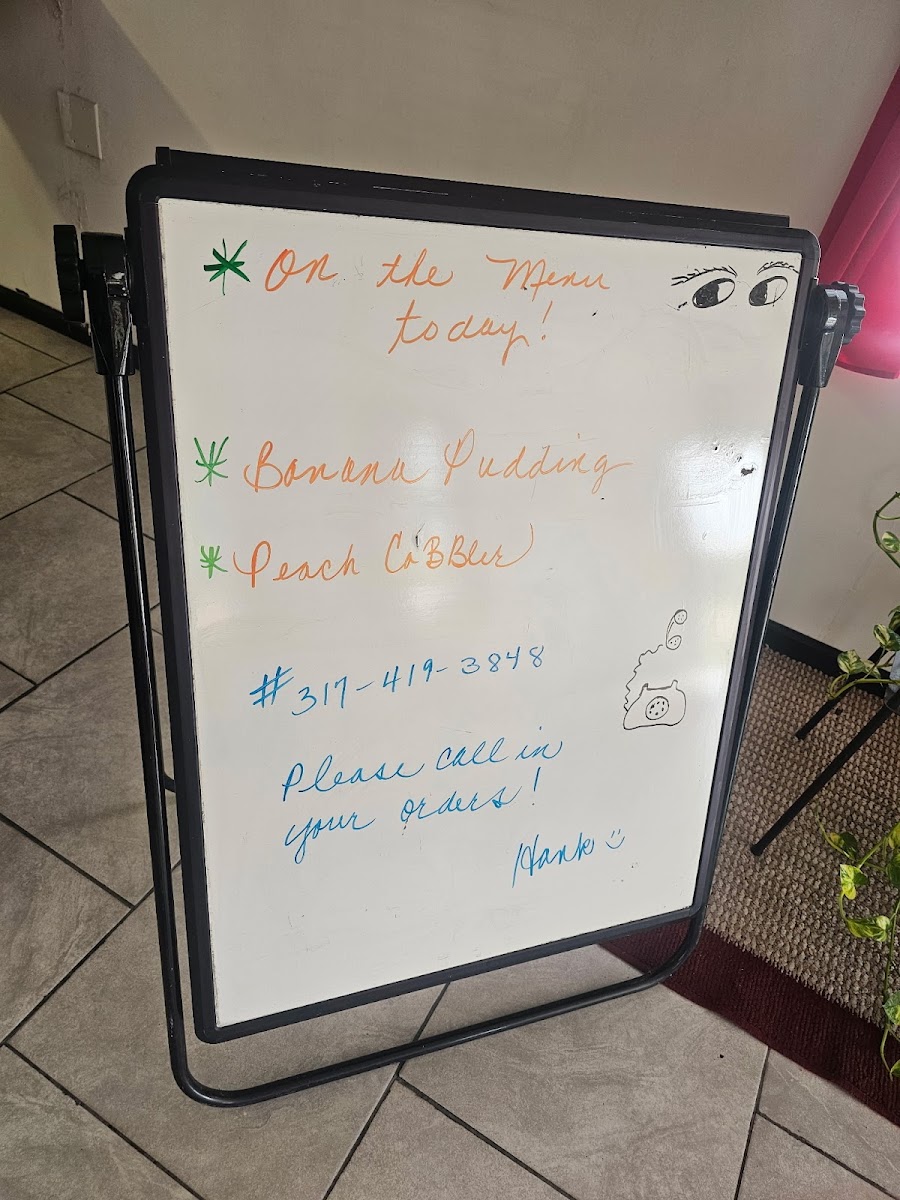 * On the Menu
today!
* Banana Pudding
* Peach CoBBler
# 317-419-3848
Please call in
your orders!
Hank :)